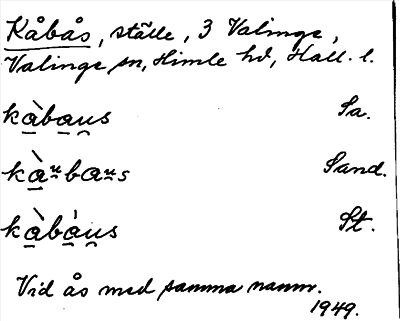 Kåbås, ställe, 3 Valinge,
Valinge sn, Himle hd, Hall. l.
kàbaus Sa.
kàᵘbaᵘs Sand.
kàbáus St.
Vid ås med samma namn.
1949.